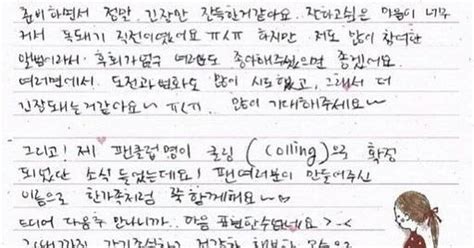 준비하면서 정말 긴장만 잔뜩한거같아요. 잘하고싶은 마음이 너무
커서 폭돼기 직전이였어요 ㅠㅅㅠ 하지만 저도 많이 참여한
앨범이라서 흑흑가얼구 여러분도 좋아해주셨으면 좋겠어요.
여러면에서 도전과변화도 많이 시도했고, 그래서 더
긴장돼는거같아요~ ㅠㅅㅠ. 많이 기대해주세요~
그리고! 제 팬클럽명이 콜링 (Colling)으로 확정
되었단 소식 들었는데요! 팬여러분이 만들어주신
이름으로 한가족처럼 쭉 함께해요~
드디어 다음주 만나니까.. 마음 표현할수있네요 >-<
감기조심하고 건강한